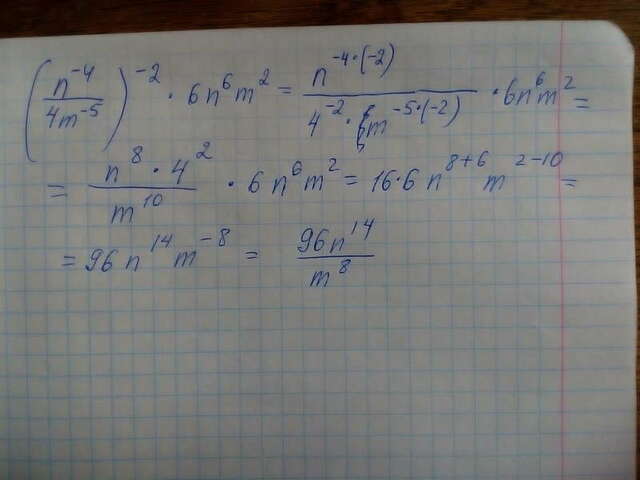 (n⁻⁴/4m⁻⁵)⁻² · 6n⁶m² = n⁻⁴·⁽⁻²⁾/4⁻² · m⁻⁵·⁽⁻²⁾ · 6n⁶m² =
= n⁸ · 4²/m¹⁰ · 6n⁶m² = 16·6 n⁸⁺⁶ m²⁻¹⁰ =
= 96n¹⁴m⁻⁸ = 96n¹⁴/m⁸